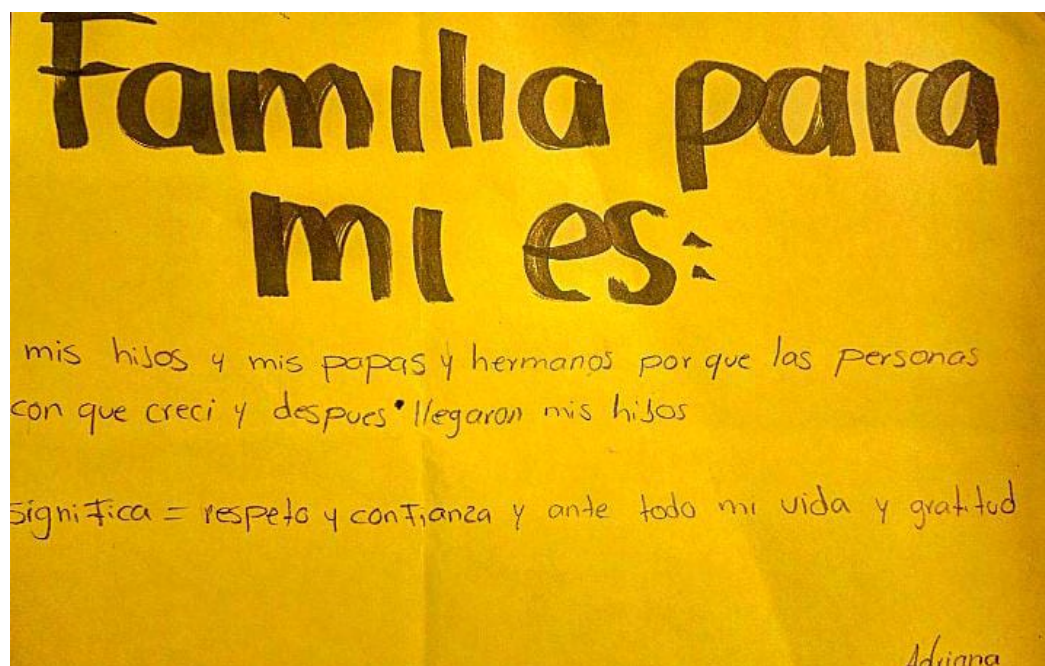 Familia para
mi es:
mis hijos y mis papas y hermanos por que las personas
con que creci y despues llegaron mis hijos
significa = respeto y confianza y ante todo mi vida y gratitud
Adriana